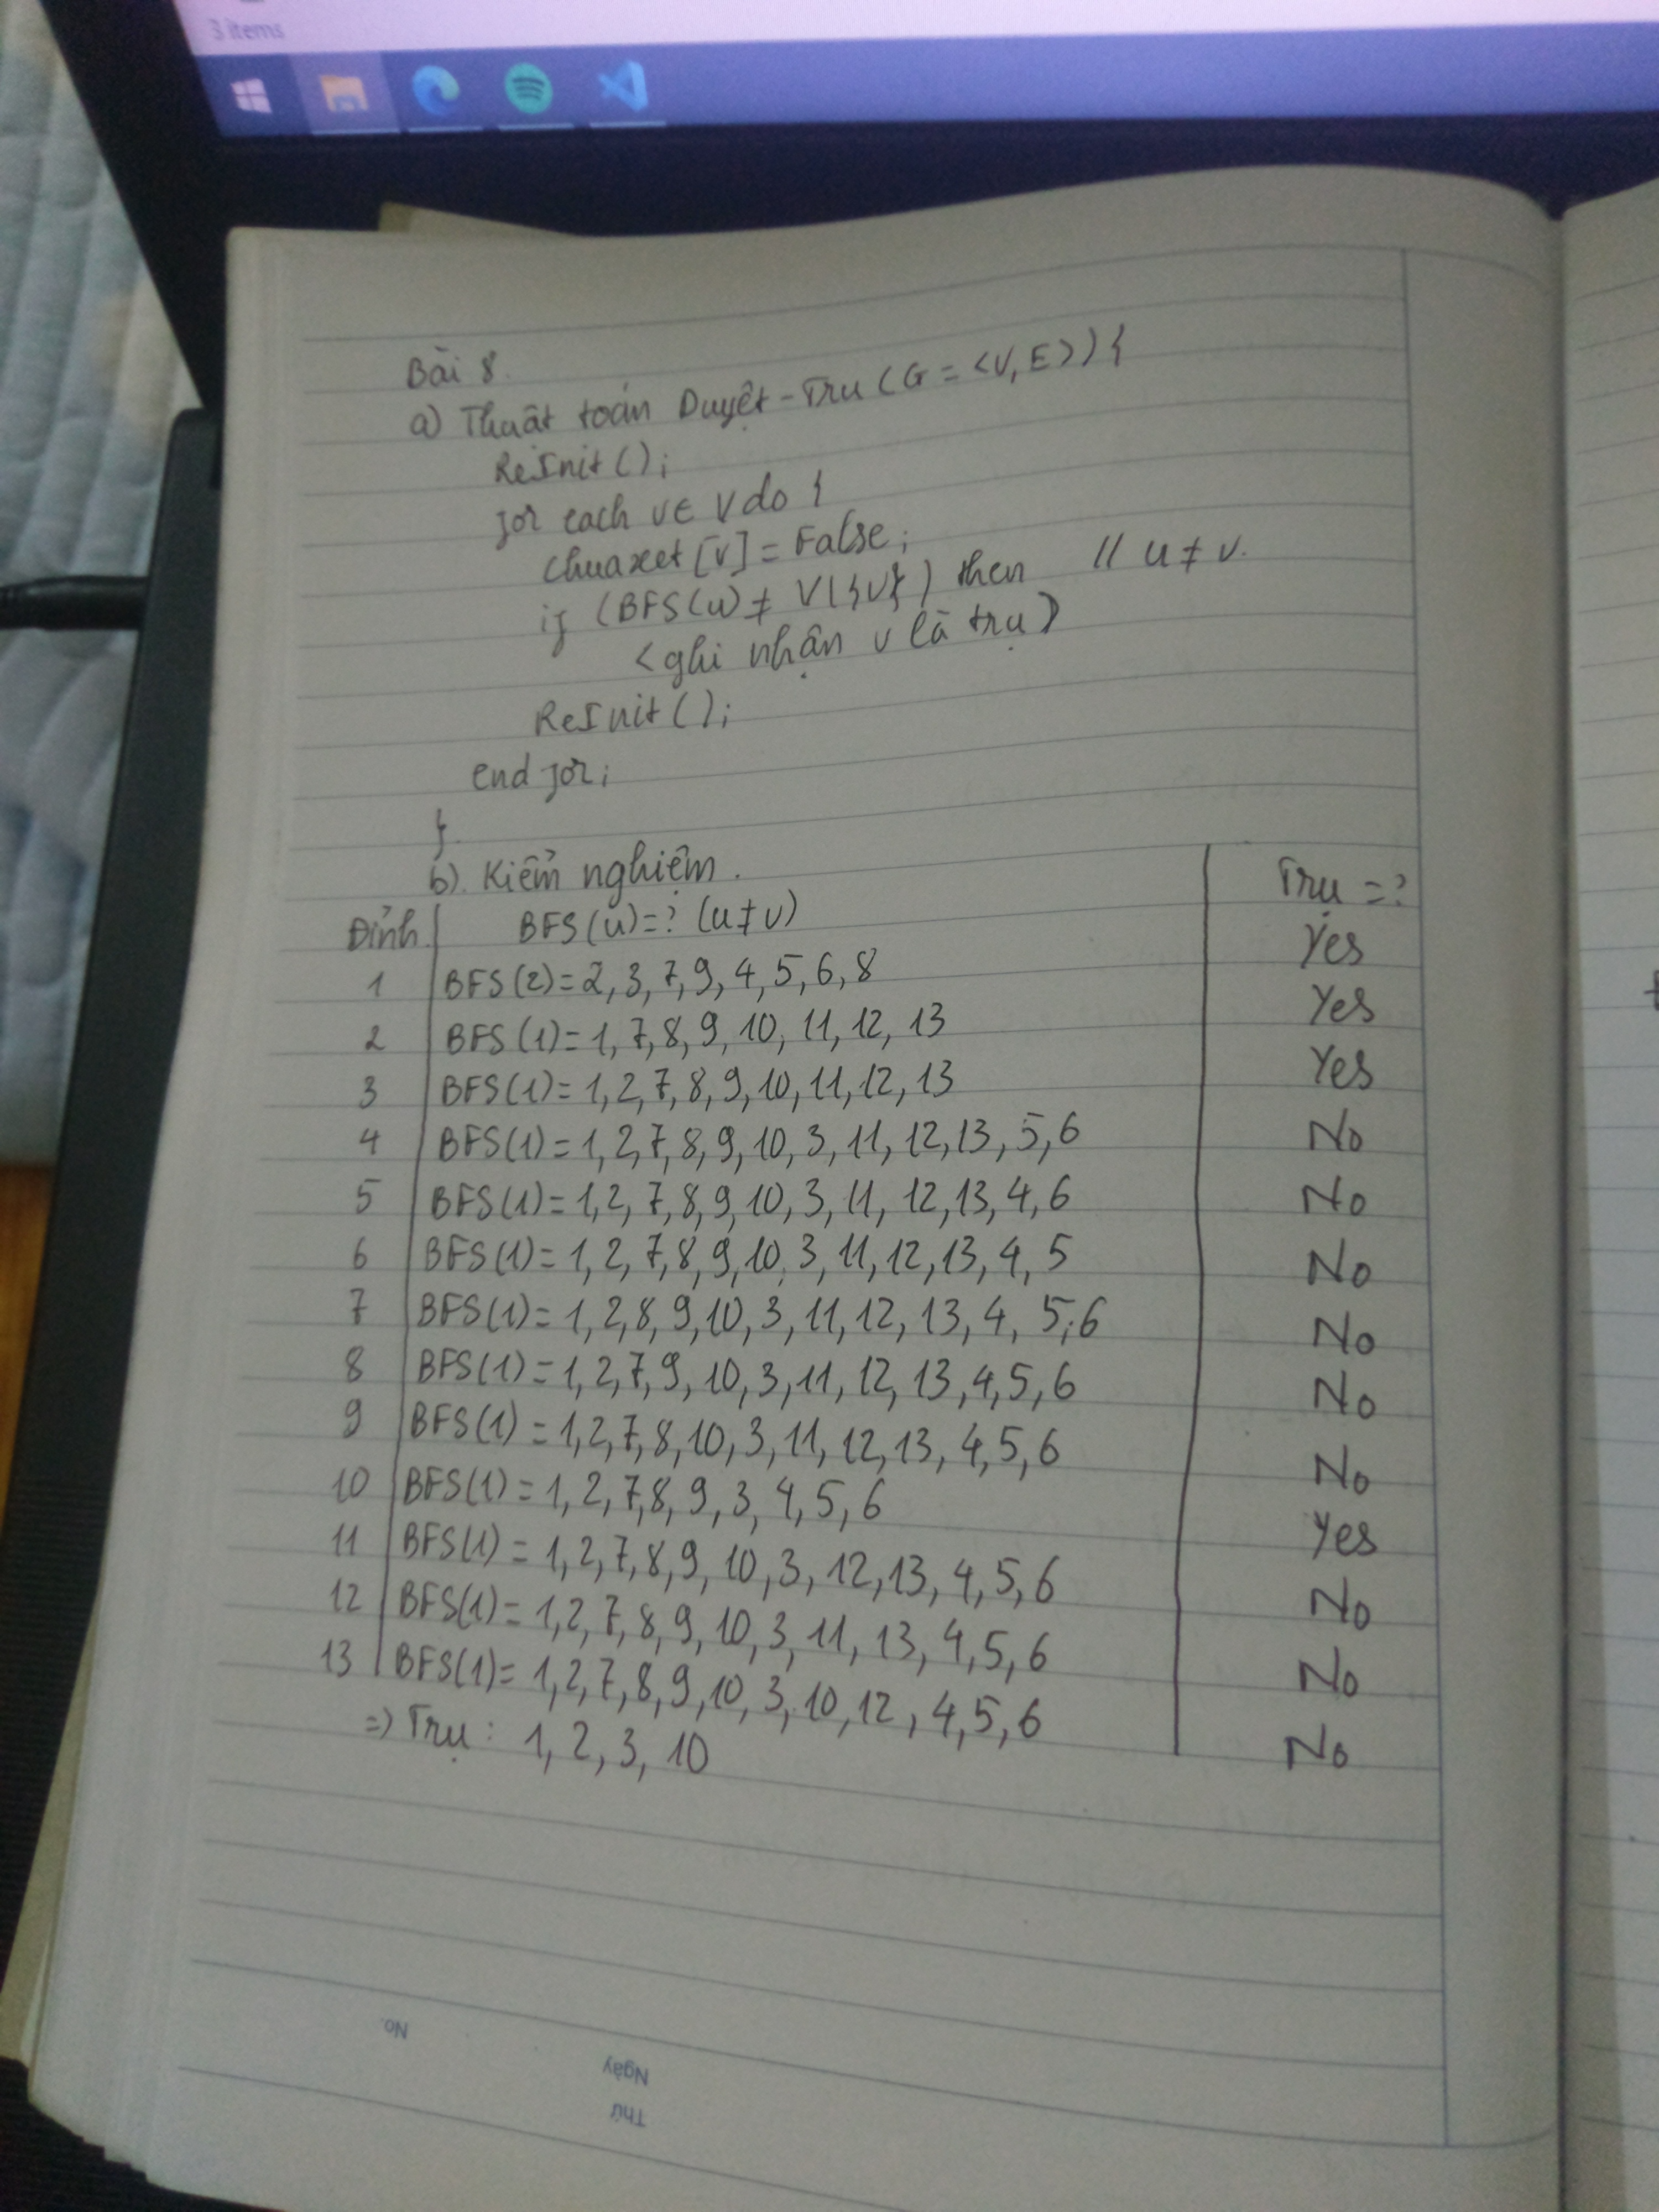 3 items
Bài 8.
a) Thuật toán Duyệt-Trụ (G = <V, E>) {
ReInit ();
for each v ∈ V do {
chuaxet [v] = False;
if (BFS(u) ≠ V\{v}) then // u ≠ v.
<ghi nhận v là trụ>
ReInit ();
end for;
}.
b). Kiểm nghiệm.
Đỉnh. BFS(u)=? (u≠v) Trụ =?
1 BFS(2)=2, 3, 7, 9, 4, 5, 6, 8 Yes
2 BFS(1)=1, 7, 8, 9, 10, 11, 12, 13 Yes
3 BFS(1)=1, 2, 7, 8, 9, 10, 11, 12, 13 Yes
4 BFS(1)=1, 2, 7, 8, 9, 10, 3, 11, 12, 13, 5, 6 No
5 BFS(1)=1, 2, 7, 8, 9, 10, 3, 11, 12, 13, 4, 6 No
6 BFS(1)=1, 2, 7, 8, 9, 10, 3, 11, 12, 13, 4, 5 No
7 BFS(1)=1, 2, 8, 9, 10, 3, 11, 12, 13, 4, 5, 6 No
8 BFS(1)=1, 2, 7, 9, 10, 3, 11, 12, 13, 4, 5, 6 No
9 BFS(1)=1, 2, 7, 8, 10, 3, 11, 12, 13, 4, 5, 6 No
10 BFS(1)=1, 2, 7, 8, 9, 3, 4, 5, 6 Yes
11 BFS(1)=1, 2, 7, 8, 9, 10, 3, 12, 13, 4, 5, 6 No
12 BFS(1)=1, 2, 7, 8, 9, 10, 3, 11, 13, 4, 5, 6 No
13 BFS(1)=1, 2, 7, 8, 9, 10, 3, 10, 12, 4, 5, 6 No
=) Trụ: 1, 2, 3, 10
No.
Ngày
Thứ